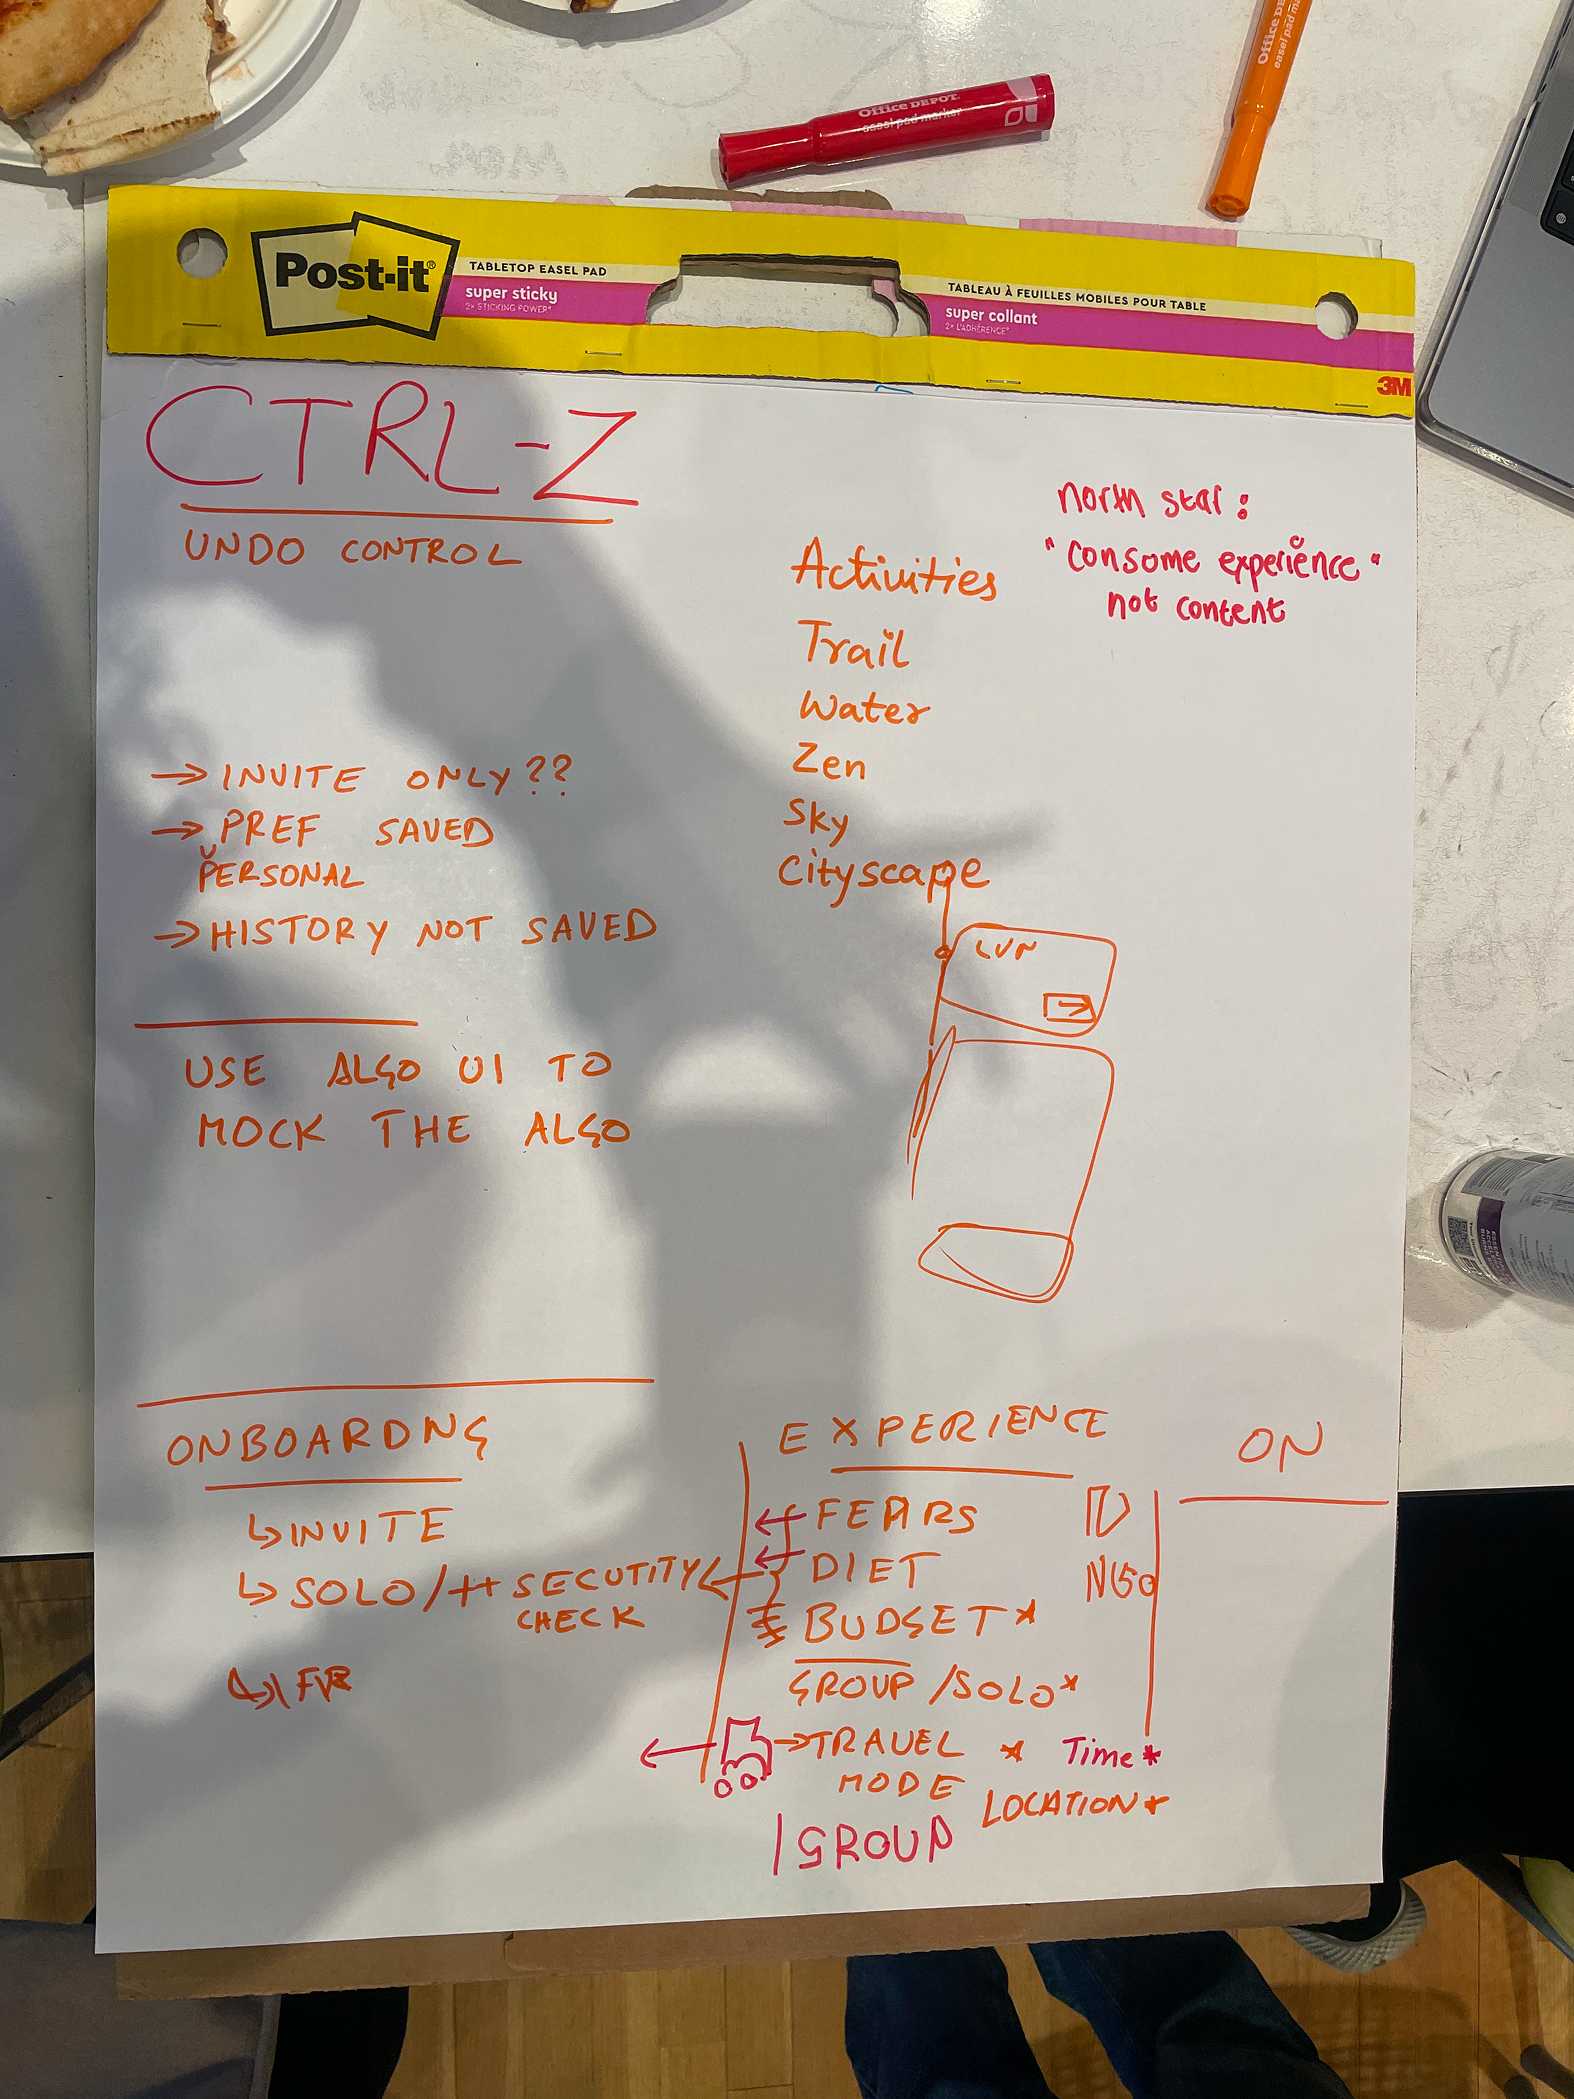 Office DEPOT
easel pad marker
Office DE
easel pad ma
Post-it®
TABLETOP EASEL PAD
super sticky
2x STICKING POWER*
TABLEAU À FEUILLES MOBILES POUR TABLE
super collant
2x L'ADHÉRENCE*
3M
CTRL-Z
UNDO CONTROL
north star:
"consome experience"
not content
Activities
Trail
Water
Zen
Sky
Cityscape
→ INVITE ONLY??
→ PREF SAVED
PERSONAL
→ HISTORY NOT SAVED
USE ALGO UI TO
MOCK THE ALGO
ONBOARDNG
↳ INVITE
↳ SOLO/++ SECUTITY
CHECK
EXPERIENCE
FEARS
DIET
BUDGET*
GROUP/SOLO*
→TRAVEL * Time*
MODE
LOCATION*
| GROUP
NGO
ON